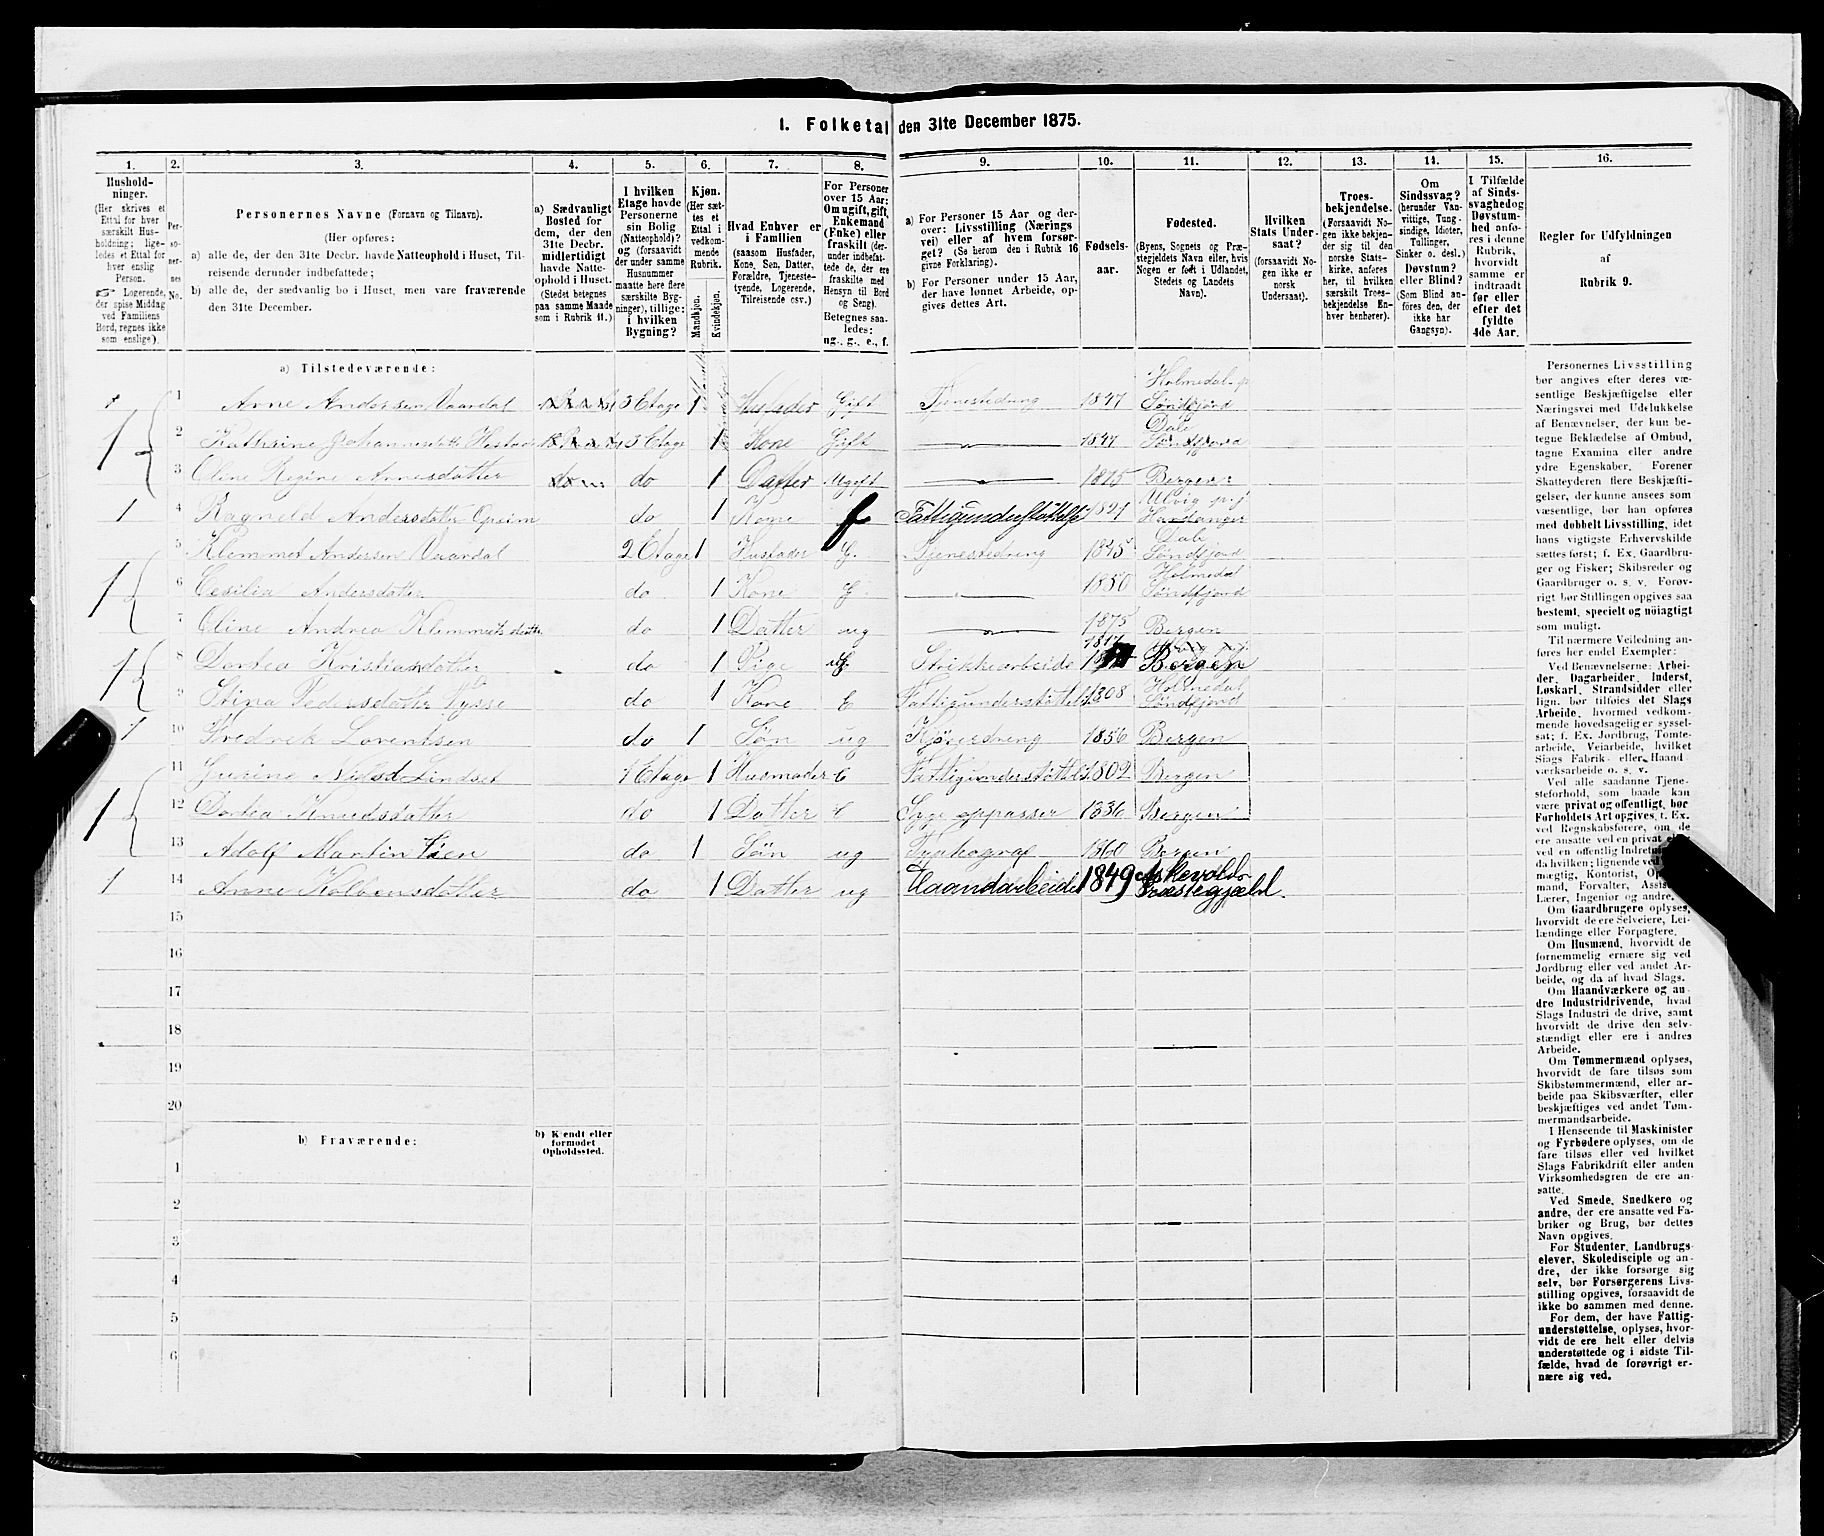 1. Folketal den 31te December 1875.
1. 2. 3. 4. 5. 6. 7. 8. 9. 10. 11. 12. 13. 14. 15. 16.
Hushold-
ninger.
(Her skrives et
Ettal for hver
særskilt Hus-
holdning; lige-
ledes et Ettal for
hver enslig
Person.
☞ Logerende,
der spise Middag
ved Familiens
Bord, regnes ikke
som enslige).
Per-
so-
ner-
nes
No.
Personernes Navne (Fornavn og Tilnavn).
(Her opføres:
a) alle de, der den 31te Decbr. havde Natteophold i Huset, Til-
reisende derunder indbefattede;
b) alle de, der sædvanlig bo i Huset, men vare fraværende
den 31te December.
a) Sædvanligt
Bosted for
dem, der den
31te Decbr.
midlertidigt
havde Natte-
ophold i Huset.
(Stedet betegnes
paa samme Maade
som i Rubrik 11.)
I hvilken
Etage havde
Personerne
sin Bolig
(Natteophold)?
(forsaavidt
der under samme
Husnummer
maatte høre flere
særskilte Byg-
ninger), tillige:
i hvilken
Bygning?
Kjøn.
(Her sæt-
tes et
Ettal i
vedkom-
mende
Rubrik.
Mandkjøn.
Kvindekjøn.
Hvad Enhver er
i Familien
(saasom Husfader,
Kone, Søn, Datter,
Forældre, Tjeneste-
tyende, Logerende,
Tilreisende osv.)
For Personer
over 15 Aar:
Om ugift, gift,
Enkemand
(Enke) eller
fraskilt (der-
under indbefat-
tede de, der ere
fraskilte med
Hensyn til Bord
og Seng).
Betegnes saa-
ledes:
ug., g., e., f.
a) For Personer 15 Aar og der-
over: Livsstilling (Nærings
vei) eller af hvem forsør-
get? (Se herom den i Rubrik 16
givne Forklaring).
b) For Personer under 15 Aar,
der have lønnet Arbeide, op-
gives dettes Art.
Fødsels-
aar.
Fødested.
(Byens, Sognets og Præ-
stegjeldets Navn eller, hvis
Nogen er født i Udlandet,
Stedets og Landets
Navn).
Hvilken
Stats Under-
saat?
(forsaavidt No-
gen ikke er
norsk
Undersaat).
Troes-
bekjendelse.
(Forsaavidt No-
gen ikke bekjen-
der sig til den
norske Stats-
kirke, anføres
her, til hvilken
særskilt Troes-
bekjendelse En-
hver henhører).
Om
Sindssvag?
(herunder Van-
vittige, Tung-
sindige, Idioter,
Tullinger,
Sinker o. desl.)
Døvstum?
eller Blind?
(Som Blind an-
føres den, der
ikke har
Gangsyn).
I Tilfælde
af Sinds-
svaghed og
Døvstum-
hed anfø-
res i denne
Rubrik,
hvorvidt
samme er
indtraadt
før eller
efter det
fyldte
4de Aar.
Regler for Udfyldningen
af
Rubrik 9.
a) Tilstedeværende:
1 Arne Andersen Vaardal 3 Etage 1 Husfader Gift Tjenestedreng 1847 Holmedal Søndfjord
1 2 Kathrine Johannesdatter 3 Etage 1 Kone Gift 1847 Dale Søndfjord
3 Oline Regine Arnesdatter do do 1 Datter Ugift 1875 Bergen
1 4 Ragnild Andersdatter Opeim do 1 Kone f Fattigunderstøttelse 1821 Ulvig p.j. Hardanger
5 Klemmet Andersen Vaardal 2 Etage 1 Husfader G. Tjenestedreng 1845 Dale Søndfjord
1 6 Cesilia Andersdatter do 1 Kone G. 1850 Holmedal Søndfjord
7 Oline Andrea Klemmetsdatter do 1 Datter ug 1875 Bergen
1 8 Dortea Kristiansdatter do 1 Pige ug. Strikkearbeide 1817 Bergen
9 Stina Pedersdatter do 1 Kone E Fattigunderstøttels 1808 Holmedal Søndfjord
1 10 Fredrik Lorentsen do 1 Søn ug Kjøredreng 1856 Bergen
11 Gurine Nielsd Lindset 1 Etage 1 Husmoder E Fattigunderstøttels 1802 Bergen
1 12 Dortea Knudsdatter do 1 Datter E Syge oppasser 1836 Bergen
13 Adolf Martin do 1 Søn ug Typhograf 1860 Bergen
1 14 Anne Kolbensdatter do 1 Datter ug Haandarbeide 1849 Askevolds Præstegjæld.
15
16
17
18
19
20
b) Fraværende:
b) Kjendt eller
formodet
Opholdssted.
1
2
3
4
5
6
Personernes Livsstilling
bør angives efter deres væ-
sentlige Beskjæftigelse eller
Næringsvei med Udelukkelse
af Benævnelser, der kun be-
tegne Beklædelse af Ombud,
tagne Examina eller andre
ydre Egenskaber. Forener
Skatteyderen flere Beskjæfti-
gelser, der kunne ansees som
væsentlige, bør han opføres
med dobbelt Livsstilling, idet
hans vigtigste Erhvervskilde
sættes først; f. Ex. Gaardbru-
ger og Fisker; Skibsreder og
Gaardbruger o. s. v. Forøv-
rigt bør Stillingen opgives saa
bestemt, specielt og nöiagtigt
som muligt.
Til nærmere Veiledning an-
føres her endel Exempler:
Ved Benævnelserne: Arbei-
der, Dagarbeider, Inderst,
Løskarl, Strandsidder eller
lign. bør tilføies det Slags
Arbeide, hvormed vedkom-
mende hovedsagelig er syssel-
sat; f. Ex. Jordbrug, Tomte-
arbeide, Veiarbeide, hvilket
Slags Fabrik- eller Haand
værksarbeide o. s. v.
Ved alle saadanne Tjene-
steforhold, som baade kan
være privat og offentligt, bør
Forholdets Art opgives, t. Ex.
ved Regnskabsførere, om de
ere ansatte ved en privat
ved en offentlig Indretn
da hvilken; lignende ved
mægtig, Kontorist, Op
mand, Forvalter, Assis
Lærer, Ingeniør og andre.
Om Gaardbrugere oplyses,
hvorvidt de ere Selveiere, Lei-
lændinge eller Forpagtere.
Om Husmænd, hvorvidt de
fornemmelig ernære sig ved
Jordbrug eller ved andet Ar-
beide, og da af hvad Slags.
Om Haandværkere og an-
dre Industridrivende, hvad
Slags Industri de drive, samt
hvorvidt de drive den selv-
stændigt eller ere i andres
Arbeide.
Om Tømmermænd oplyses,
hvorvidt de fare tilsøs som
Skibstømmermænd, eller ar-
beide paa Skibsværfter, eller
beskjæftiges ved andet Tøm-
mermandsarbeide.
I Henseende til Maskinister
og Fyrbødere oplyses, om de
fare tilsøs eller ved hvilket
Slags Fabrikdrift eller anden
Virksomhedsgren de ere an-
satte.
Ved Smede, Snedkere og
andre, der ere ansatte ved Fa-
briker og Brug, bør dettes
Navn opgives.
For Studenter, Landbrugs-
elever, Skoledisciple og an-
dre, der ikke forsørge sig
selv, bør Forsørgerens Livs-
stilling opgives, forsaavidt de
ikke bo sammen med denne.
For dem, der have Fattig-
understøttelse, oplyses, hvor-
vidt de ere helt eller delvis
understøttede og i sidste Til-
fælde, hvad de forøvrigt er-
nære sig ved.